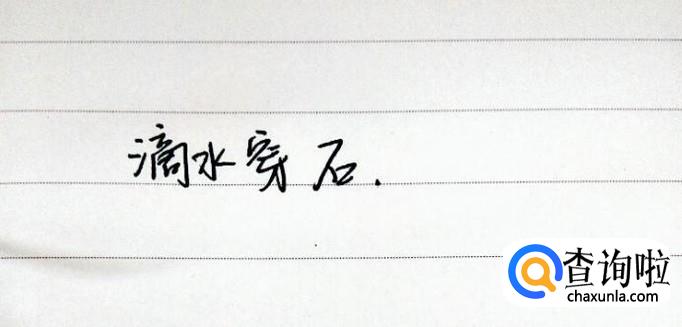 滴水穿石.
查询啦
chaxunla.com